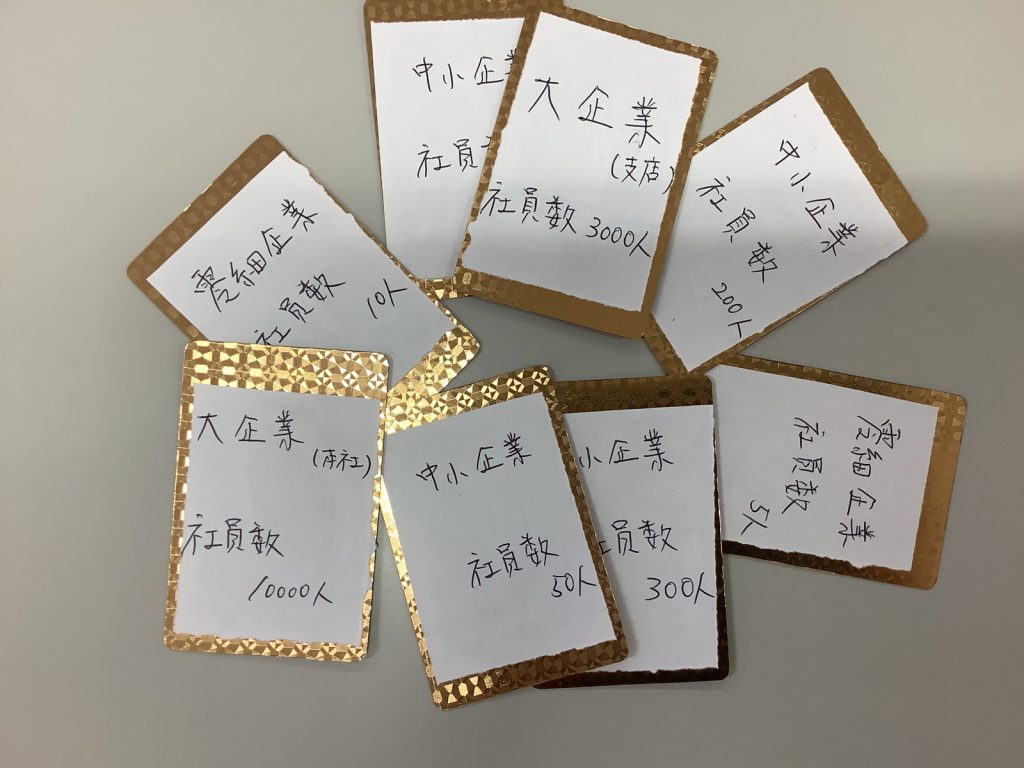 中小企業
社員
大企業
(支店)
社員数 3000人
中小企業
社員数
200人
零細企業
社員数
10人
大企業
(本社)
社員数
10000人
中小企業
社員数
50人
小企業
員数
300人
零細企業
社員数
5人